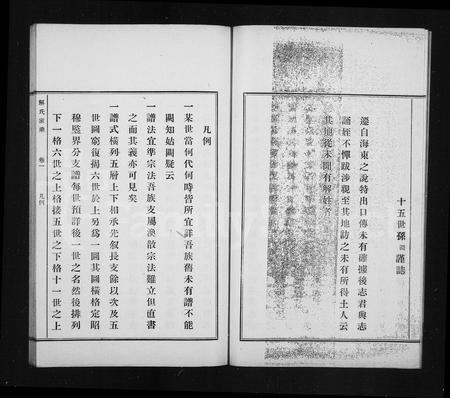 遷自海東之說特出口傳未有確據後志君與志
誦姪不憚跋涉親至其地訪之未有所得土人云
其地從未聞有解姓者
十五世孫 謹誌
凡例
一某世當何代何時皆所宜詳吾族舊未有譜不能
闕知姑闕疑云
一譜法宜準宗法吾族支屬渙散宗法難立但直書
之而其義亦可見矣
一譜式橫列五層上下相承先敘長支餘以次及五
世圖窮復揭六世於上另為一圖其圖橫格定昭
穆竪界分支譜每世預詳後一世之名然後排列
下一格六世之上格接五世之下格十一世之上
解氏家乘 卷一 凡例